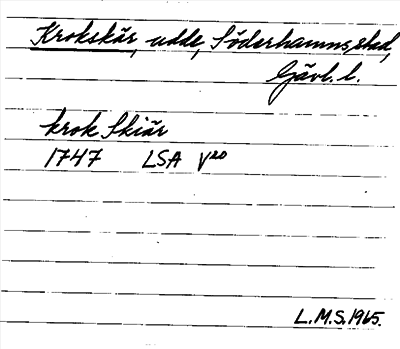 Krokskär, udde, Söderhamns stad,
Gävl. l.
krok Skiär
1747 LSA V20
L.M.S. 1965.